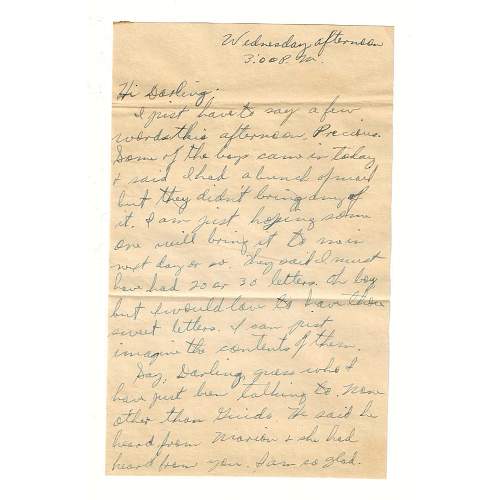 Wednesday afternoon
3:00 P.M.
Hi Darling.
I just have to say a few
words this afternoon, Precious.
Some of the boys came in today
& said I had a bunch of mail
but they didn't bring any of
it. I am just hoping some
one will bring it to me in
next day or so. They said I must
have had 20 or 30 letters. Oh boy
but I would love to have those
sweet letters. I can just
imagine the contents of them.
Say, Darling, guess who I
have just been talking to. None
other than Guido. He said he
heard from Marion & she had
heard from you. I am so glad.